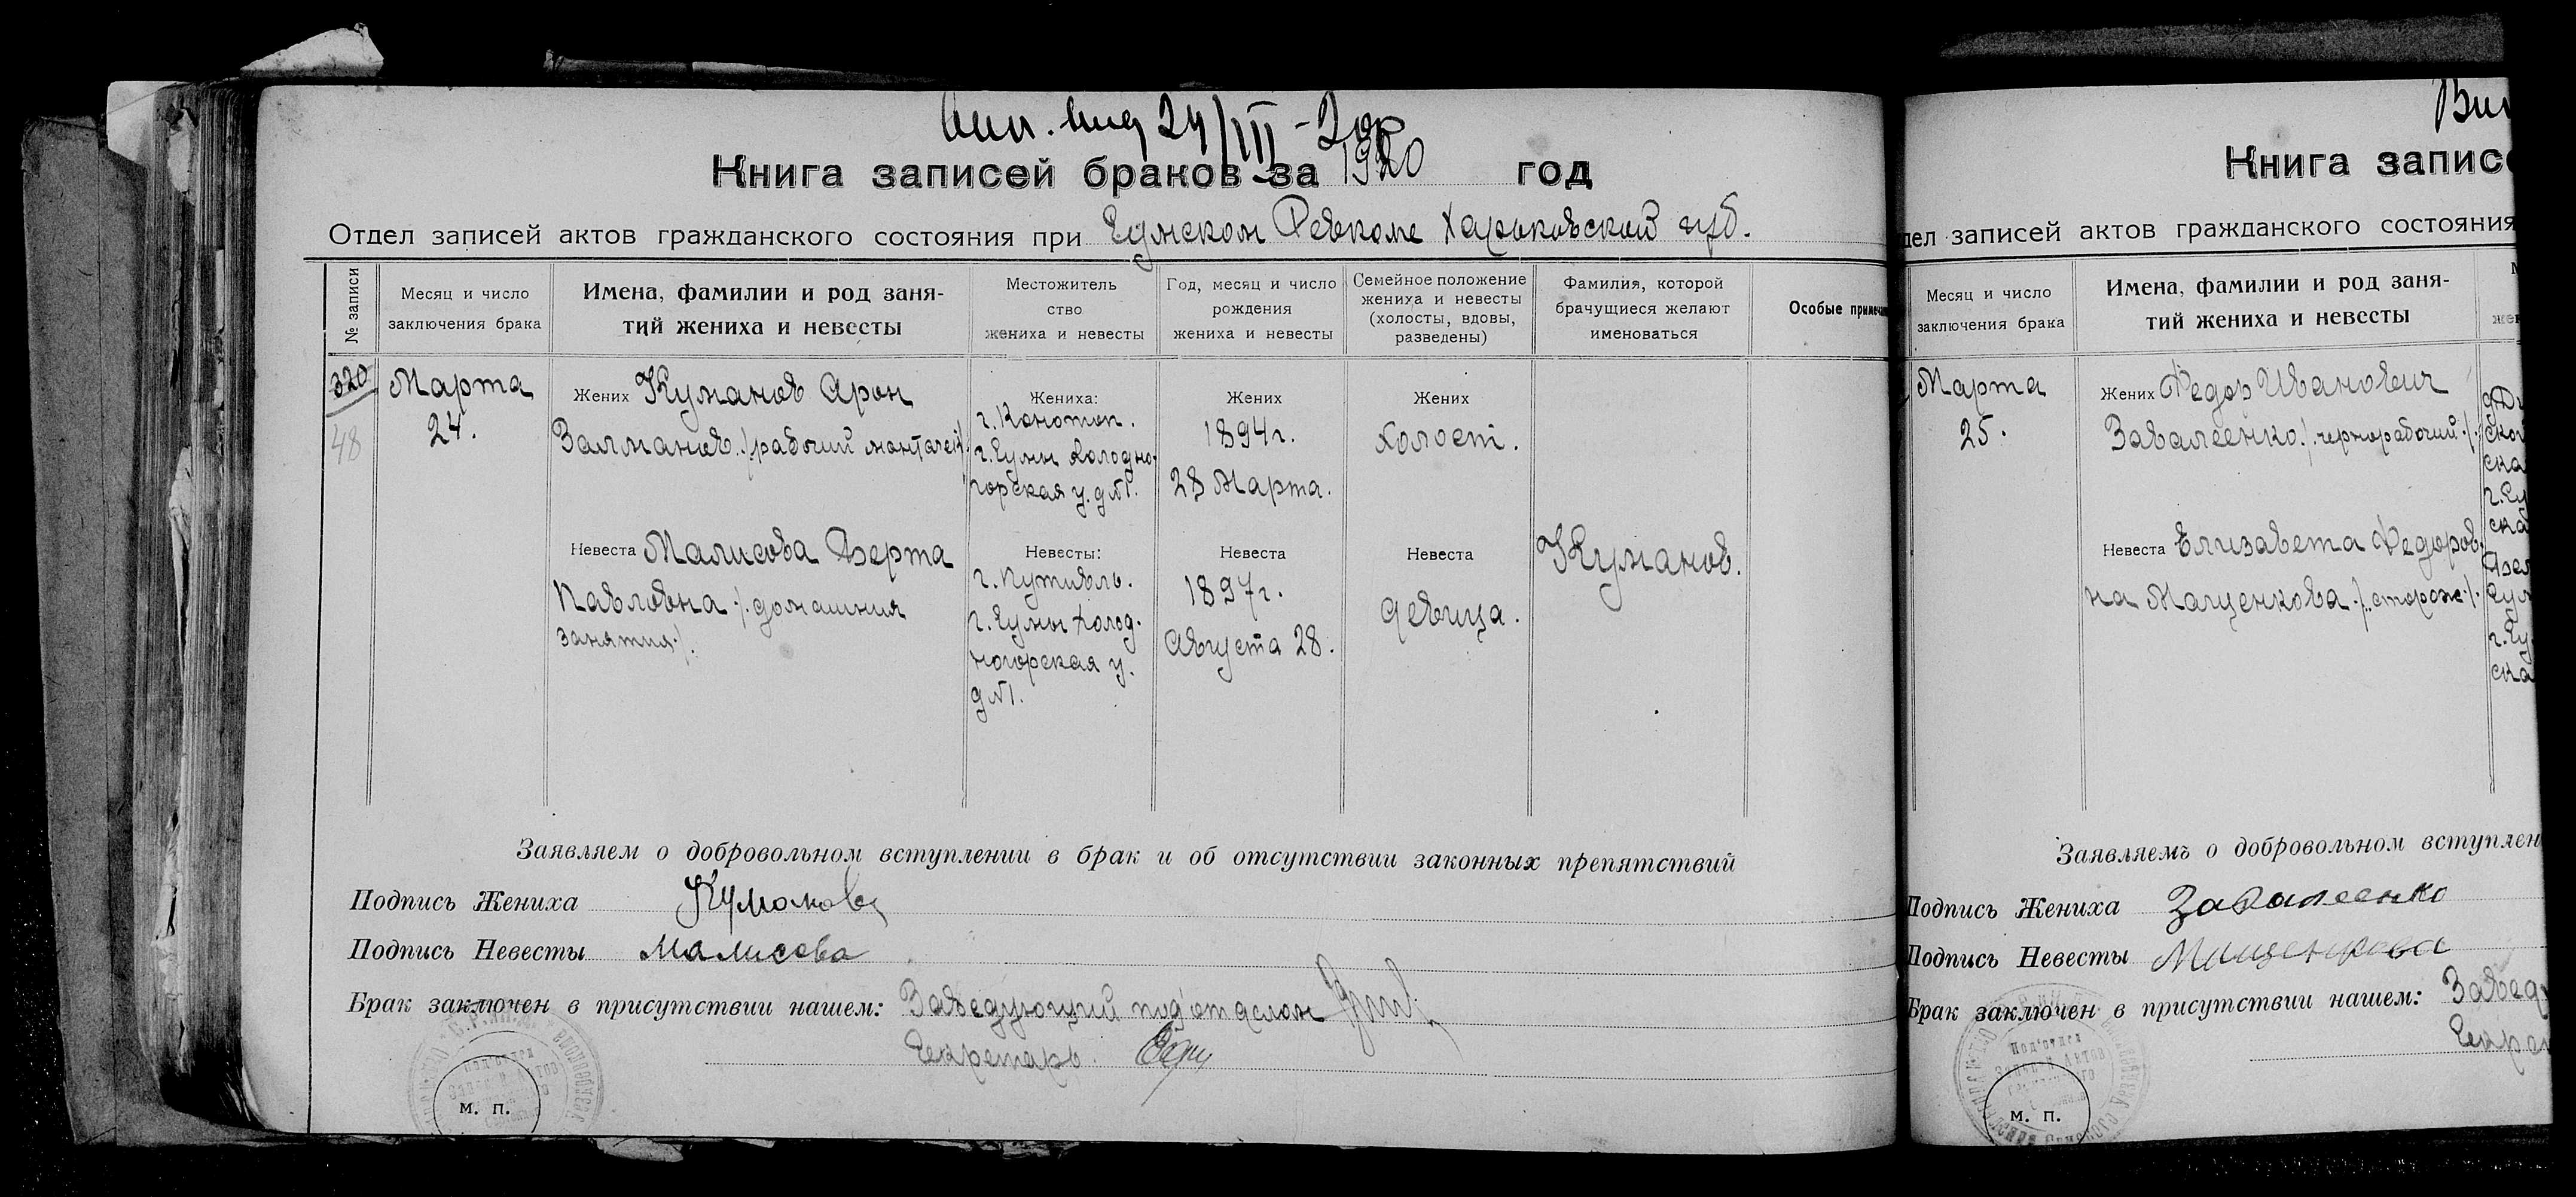 24/III-20г
Книга записей браков за 1920 год
Отдел записей актов гражданского состояния при Сумском Ревкоме Харьковской губ.
№ записи
Месяц и число
заключения брака
Имена, фамилии и род заня-
тий жениха и невесты
Местожитель
ство
жениха и невесты
Год, месяц и число
рождения
жениха и невесты
Семейное положение
жениха и невесты
(холосты, вдовы,
разведены)
Фамилия, которой
брачущиеся желают
именоваться
Особые примечан
320
48
Марта
24.
Жених Куманов Арон
Залманов /рабочий
Жениха:
г. Конотоп.
г. Сумы Холодно-
горская у. д №1.
Жених
1894 г.
28 Марта.
Жених
Холост.
Невеста Малисова Берта
Павловна /домашния
занятия/.
Невесты:
г. Путивль.
г. Сумы Холод-
ногорская у.
д №1.
Невеста
1897 г.
Августа 28.
Невеста
девица.
Куманов.
Заявляем о добровольном вступлении в брак и об отсутствии законных препятствий
Подпись Жениха Куманов
Подпись Невесты Малисова
Брак заключен в присутствии нашем: Заведующий под'отделом
Секретарь.
м. п.
Книга записе
дел записей актов гражданского состояния
Месяц и число
заключения брака
Имена, фамилии и род заня-
тий жениха и невесты
Марта
25.
Жених Федор Иванович
Завалеенко /чернорабочий/.
Невеста Елизавета Федоров-
на Мащенкова /сторож/.
Заявляемъ о добровольном вступлен
Подпись Жениха Завалеенко
Подпись Невесты Мащенкова
Брак заключен в присутствии нашем: Завед
Секре
Под'отдел
м. п.